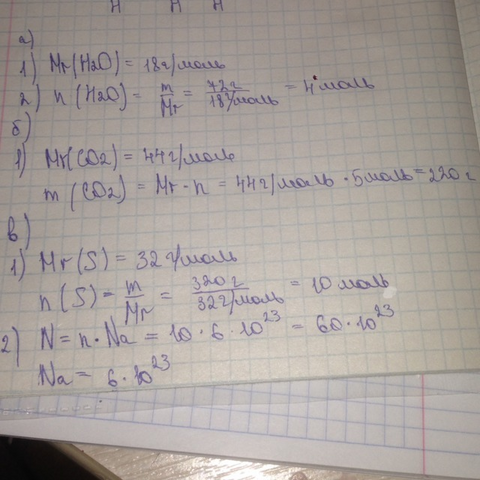 H H H
а)
1) Mr(H2O) = 18 г/моль
2) n(H2O) = m/Mr = 72 г/18 г/моль = 4 моль
б)
1) Mr(CO2) = 44 г/моль
m(CO2) = Mr · n = 44 г/моль · 5 моль = 220 г
в)
1) Mr(S) = 32 г/моль
n(S) = m/Mr = 320 г/32 г/моль = 10 моль
2) N = n · Na = 10 · 6 · 10²³ = 60 · 10²³
Na = 6 · 10²³